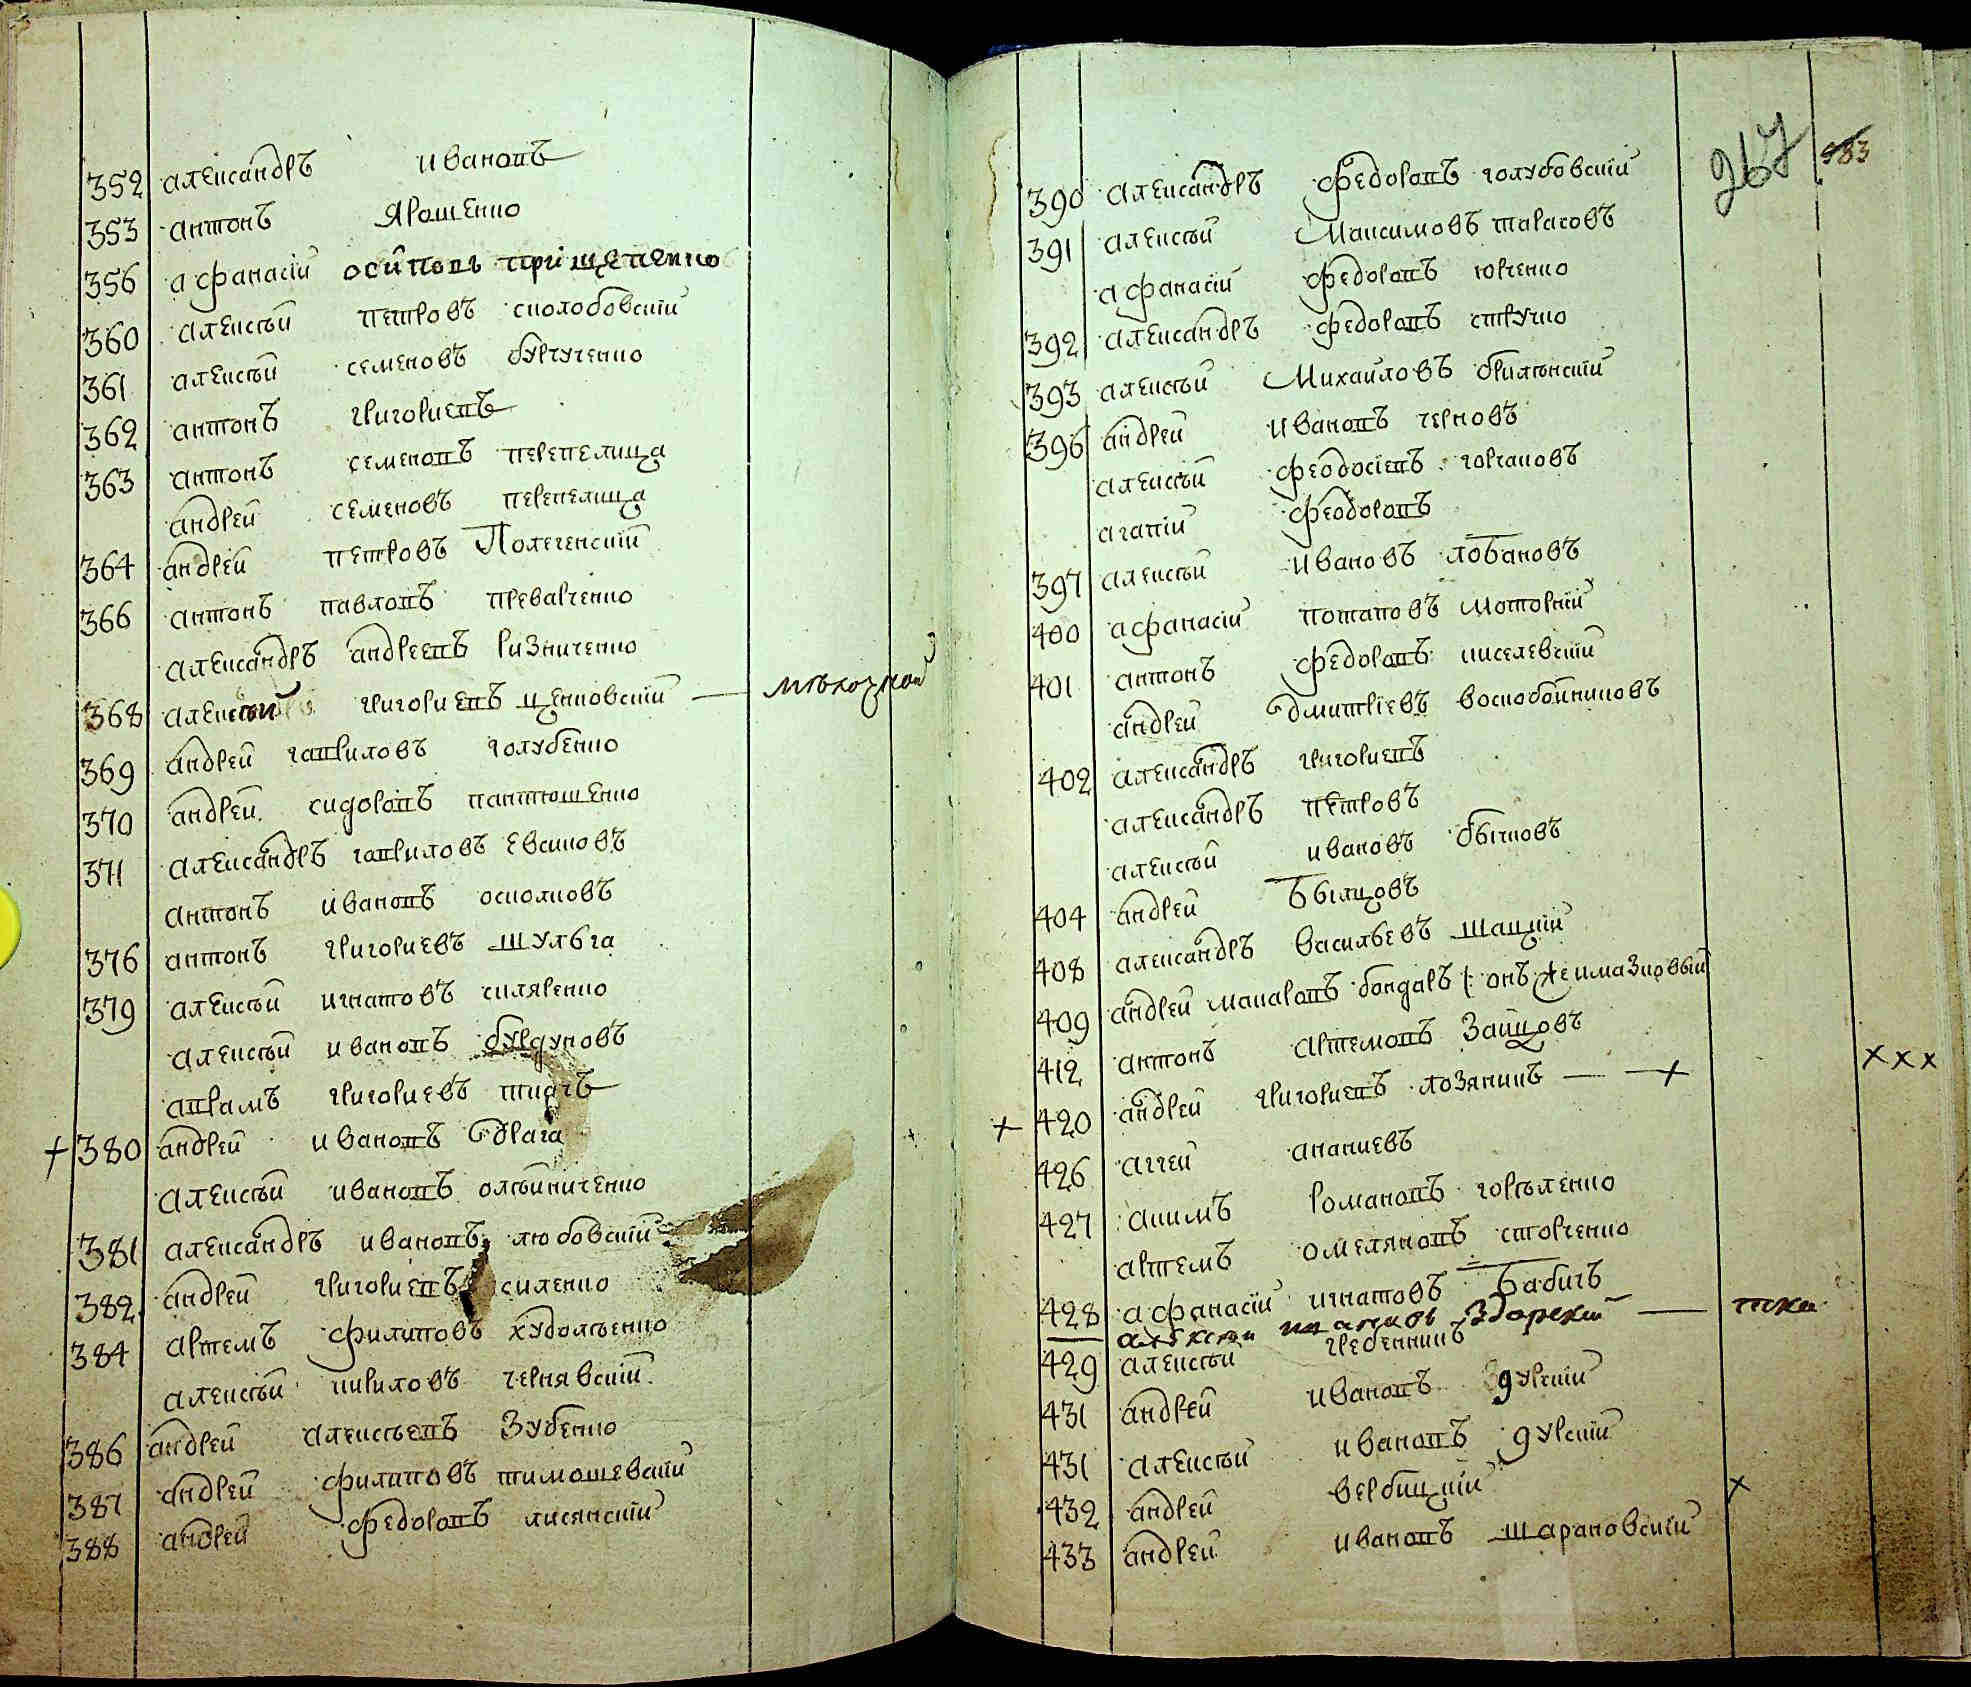 352 александръ ивановъ
353 антонъ ярошенко
356 афанасій осиповъ прищепенко
360 алексѣй петровъ сколобовскій
361 алексѣй семеновъ бурчученко
362 антонъ григориевъ
363 антонъ семеновъ перепелица
андрей семеновъ перепелица
364 андрей петровъ Полегенскій
366 антонъ павловъ преварченко
александръ андреевъ ризниченко
368 алексѣй григориевъ ценковскій —
369 андрей гавриловъ голубенко
370 андрей сидоровъ пантюшенко
371 александръ гавриловъ евсиковъ
антонъ ивановъ осколковъ
376 антонъ григориевъ шульга
379 алексѣй игнатовъ скляренко
алексѣй ивановъ бурдуковъ
аврамъ григориевъ ткачъ
+ 380 андрей ивановъ драга
алексѣй ивановъ олѣйниченко
381 александръ ивановъ любовскій
382 андрей григориевъ силенко
384 артемъ филиповъ худолѣенко
алексѣй кириловъ чернявскій
386 андрей алексѣевъ Зубенко
387 андрей филиповъ тимошевскій
388 андрей федоровъ лисянскій
267 983
390 александръ федоровъ голубовскій
391 алексѣй Максимовъ тарасовъ
афанасій федоровъ юрченко
392 александръ федоровъ стручко
393 алексѣй Михайловъ брилѣнскій
396 андрей ивановъ черновъ
алексѣй феодосіевъ горчаковъ
агапій феодоровъ
397 алексѣй ивановъ лобановъ
400 афанасій потаповъ моторній
401 антонъ федоровъ киселевскій
андрей дмитріевъ воскобойниковъ
402 александръ григориевъ
александръ петровъ
алексѣй ивановъ бычковъ
404 андрей Бѣлцовъ
408 александръ васильевъ шацкій
409 андрей макаровъ бондаръ (: онъ же имазировый
412 антонъ артемовъ Зайцовъ
ххх
+ 420 андрей григориевъ лозяникъ — — +
426 аггей ананиевъ
427 акимъ романовъ горѣленко
артемъ омеляновъ сторченко
428 афанасій игнатовъ Бабичъ
алексѣй Здорский —
429 алексѣй гребенникъ
431 андрей ивановъ дурскій
431 алексѣй ивановъ дурскій
432 андрей вербицкій х
433 андрей ивановъ шарановскій